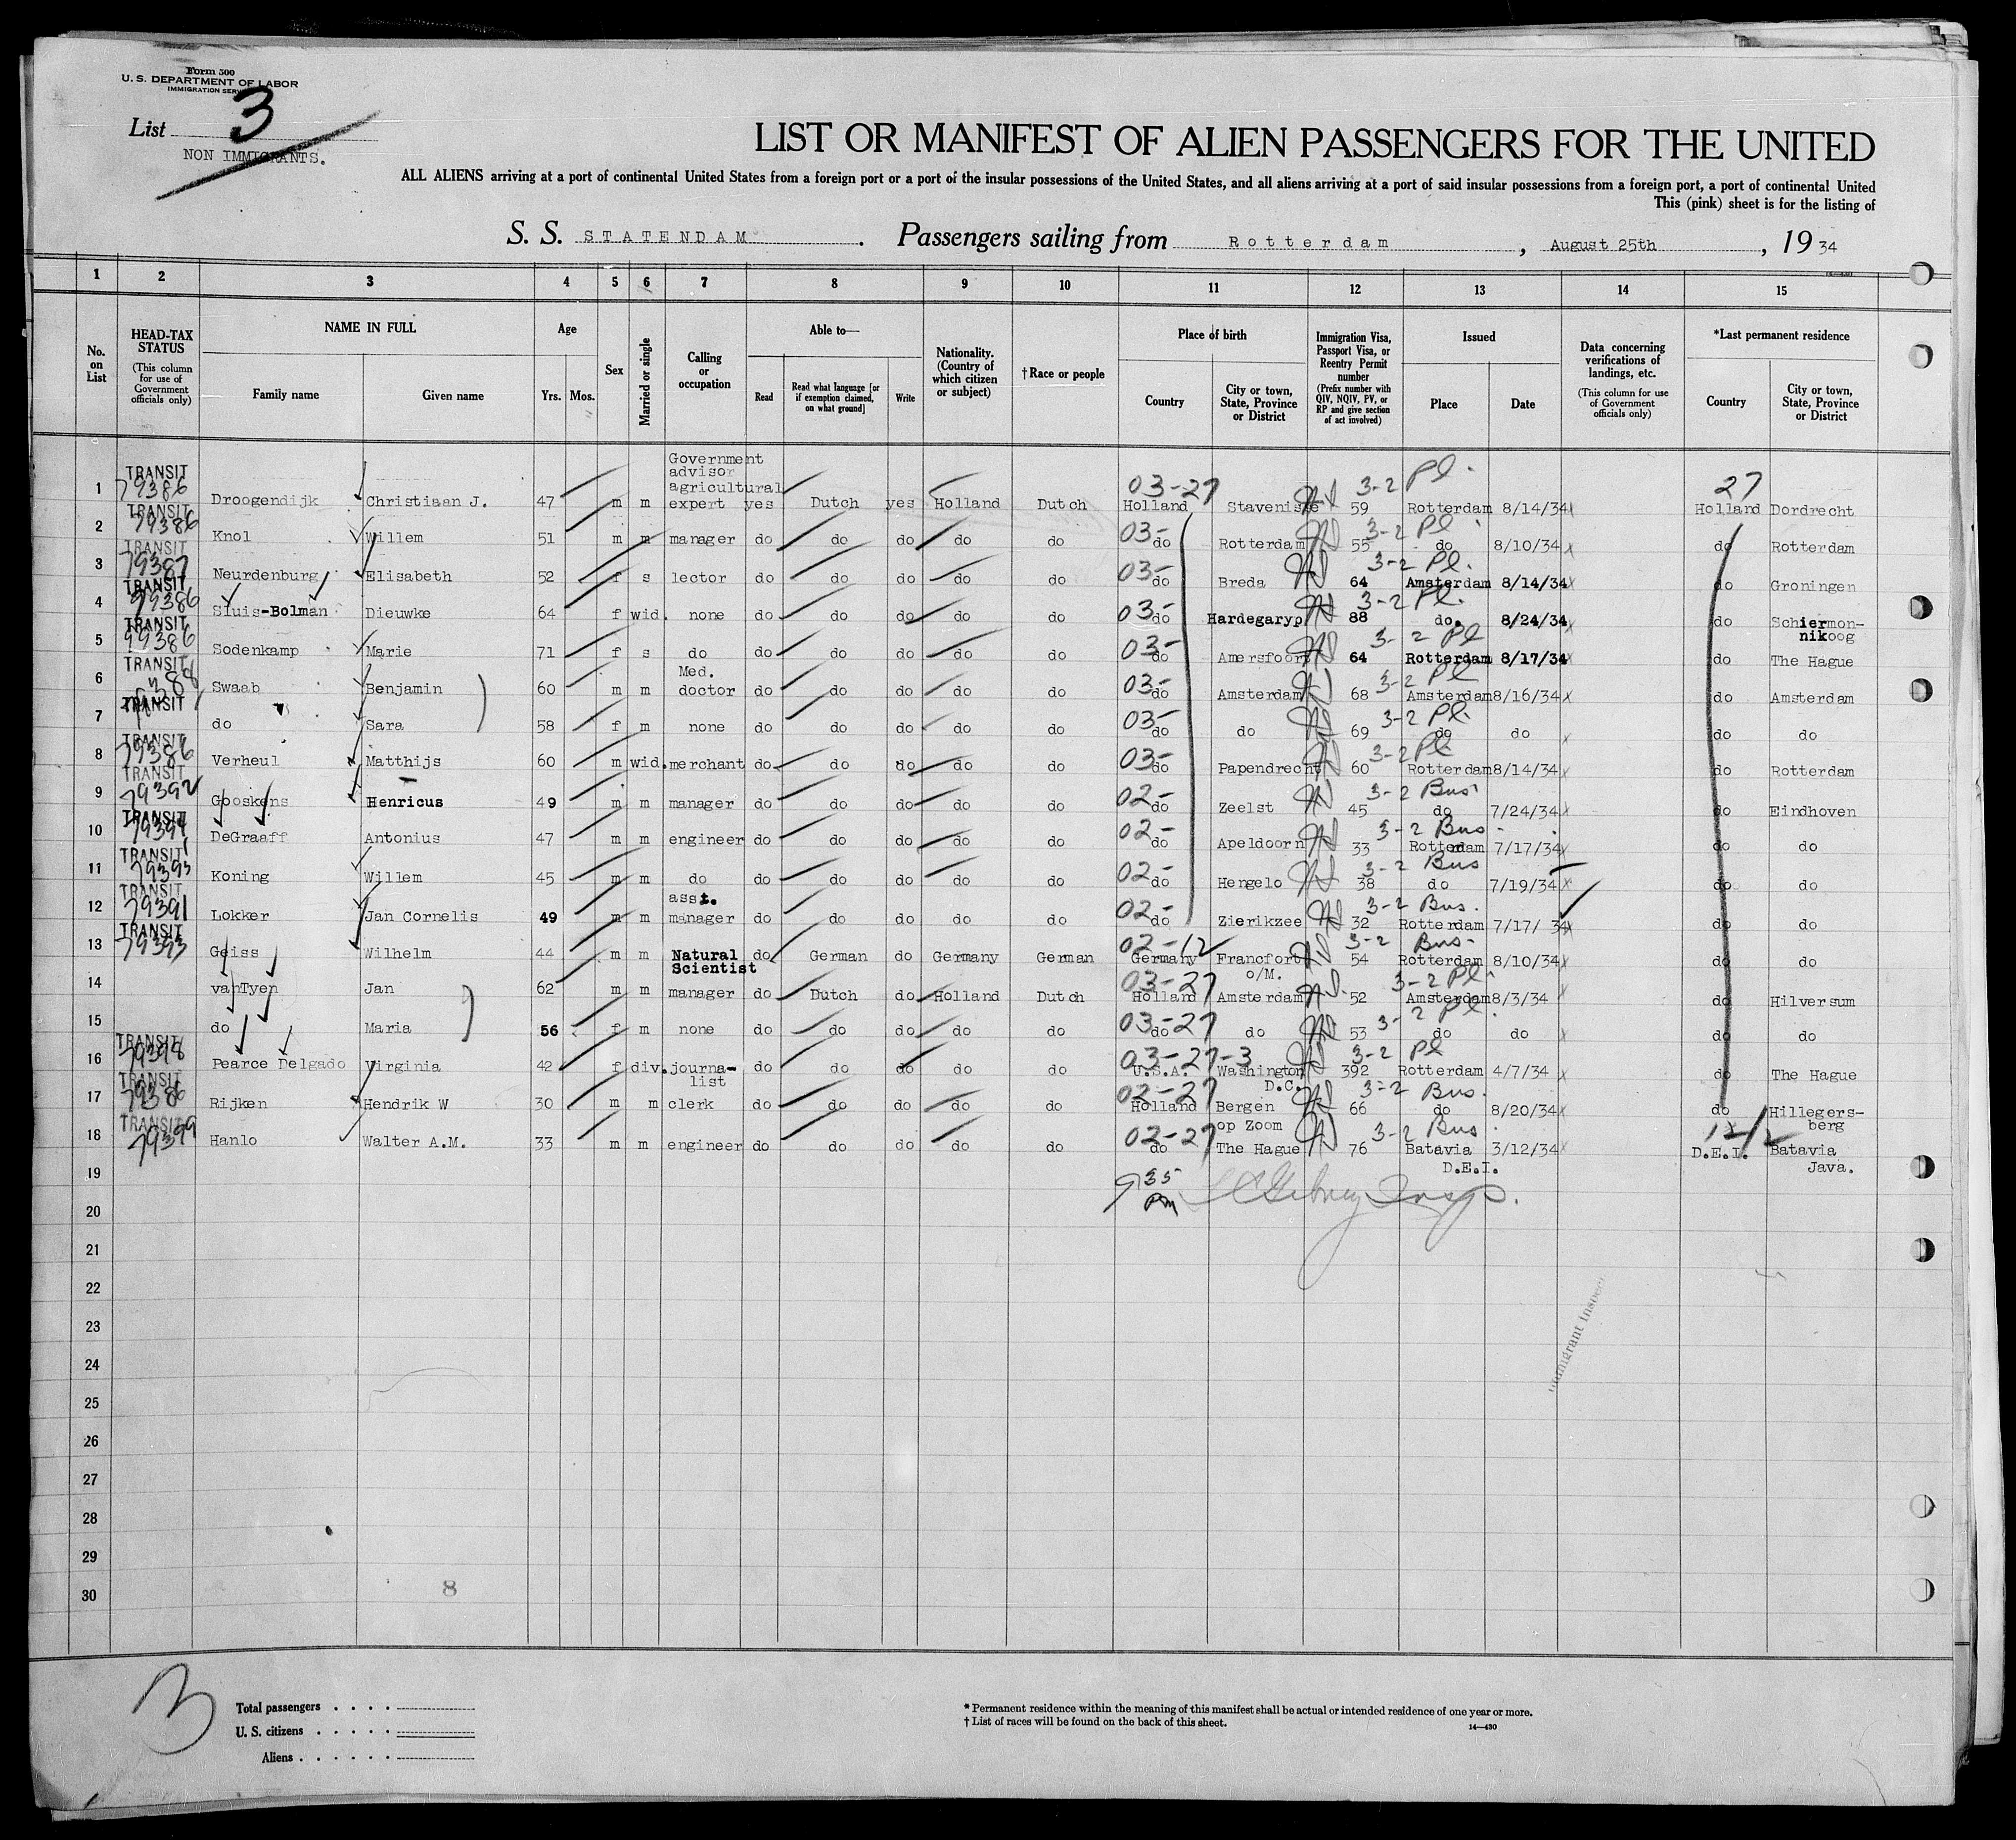 Form 500
U. S. DEPARTMENT OF LABOR
IMMIGRATION SERVICE
List 3
NON IMMIGRANTS.
LIST OR MANIFEST OF ALIEN PASSENGERS FOR THE UNITED
ALL ALIENS arriving at a port of continental United States from a foreign port or a port of the insular possessions of the United States, and all aliens arriving at a port of said insular possessions from a foreign port, a port of continental United
This (pink) sheet is for the listing of
S. S. STATENDAM. Passengers sailing from Rotterdam, August 25th, 1934
1 2 3 4 5 6 7 8 9 10 11 12 13 14 15
No. on List
HEAD-TAX STATUS (This column for use of Government officials only)
NAME IN FULL Family name Given name
Age Yrs. Mos.
Sex
Married or single
Calling or occupation
Able to— Read Read what language [or if exemption claimed, on what ground] Write
Nationality. (Country of which citizen or subject)
†Race or people
Place of birth Country City or town, State, Province or District
Immigration Visa, Passport Visa, or Reentry Permit number (Prefix number with QIV, NQIV, PV, or RP and give section of act involved)
Issued Place Date
Data concerning verifications of landings, etc. (This column for use of Government officials only)
*Last permanent residence Country City or town, State, Province or District
1 TRANSIT 79386 Droogendijk Christiaan J. 47 m m Government advisor agricultural expert yes Dutch yes Holland Dutch 03-27 Holland Stavenisse 59 3-2 Pl. Rotterdam 8/14/34 27 Holland Dordrecht
2 TRANSIT 79386 Knol Willem 51 m m manager do do do do do 03- do Rotterdam 55 3-2 Pl. do 8/10/34 do Rotterdam
3 TRANSIT 79387 Neurdenburg Elisabeth 52 f s lector do do do do do 03- do Breda 64 3-2 Pl. Amsterdam 8/14/34 do Groningen
4 TRANSIT 79386 Sluis-Bolman Dieuwke 64 f wid. none do do do do do 03- do Hardegaryp 88 3-2 Pl. do. 8/24/34 do Schiermon-nikoog
5 TRANSIT 79386 Sodenkamp Marie 71 f s do do do do do do 03- do Amersfoort 64 3-2 Pl Rotterdam 8/17/34 do The Hague
6 TRANSIT Swaab Benjamin 60 m m Med. doctor do do do do do 03- do Amsterdam 68 3-2 Pl Amsterdam 8/16/34 do Amsterdam
7 TRANSIT do Sara 58 f m none do do do do do 03- do do 69 3-2 Pl. do do do do
8 TRANSIT 79386 Verheul Matthijs 60 m wid. merchant do do do do do 03- do Papendrecht 60 3-2 Pl. Rotterdam 8/14/34 do Rotterdam
9 TRANSIT 79392 Gooskens Henricus 49 m m manager do do do do do 02- do Zeelst 45 3-2 Bus do 7/24/34 do Eindhoven
10 TRANSIT 79394 DeGraaff Antonius 47 m m engineer do do do do do 02- do Apeldoorn 33 3-2 Bus- Rotterdam 7/17/34 do do
11 TRANSIT 79393 Koning Willem 45 m m do do do do do do 02- do Hengelo 38 3-2 Bus do 7/19/34 do do
12 TRANSIT 79391 Lokker Jan Cornelis 49 m m asst. manager do do do do do 02- do Zierikzee 32 3-2 Bus. Rotterdam 7/17/34 do do
13 TRANSIT 79393 Geiss Wilhelm 44 m m Natural Scientist do German do Germany German 02-12 Germany Francfort o/M. 54 3-2 Bus- Rotterdam 8/10/34 do do
14 vanTyen Jan 62 m m manager do Dutch do Holland Dutch 03-27 Holland Amsterdam 52 3-2 Pl. Amsterdam 8/3/34 do Hilversum
15 do Maria 56 f m none do do do do do 03-27 do do 53 3-2 Pl. do do do do
16 TRANSIT 79398 Pearce Delgado Virginia 42 f div. journa-list do do do do do 03-27-3 U.S.A. Washington D.C. 392 3-2 Pl Rotterdam 4/7/34 do The Hague
17 TRANSIT 79386 Rijken Hendrik W 30 m m clerk do do do do do 02-27 Holland Bergen op Zoom 66 3-2 Bus. do 8/20/34 do Hillegers-berg
18 TRANSIT 79399 Hanlo Walter A.M. 33 m m engineer do do do do do 02-27 do The Hague 76 3-2 Bus Batavia D.E.I. 3/12/34 D.E.I. Batavia Java.
19 9 35 PM
20
21
22
23
24
25
26
27
28
29
30
8
3
Total passengers
U. S. citizens
Aliens
* Permanent residence within the meaning of this manifest shall be actual or intended residence of one year or more.
† List of races will be found on the back of this sheet.
14—430